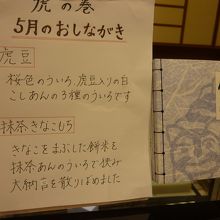 虎の巻
5月のおしながき
虎豆
桜色のういろ、虎豆入りの白
こしあんの3種のういろです
抹茶きなこもち
きなこをまぶした餅米を
抹茶あんのういろで挟み
大納言を散りばめました